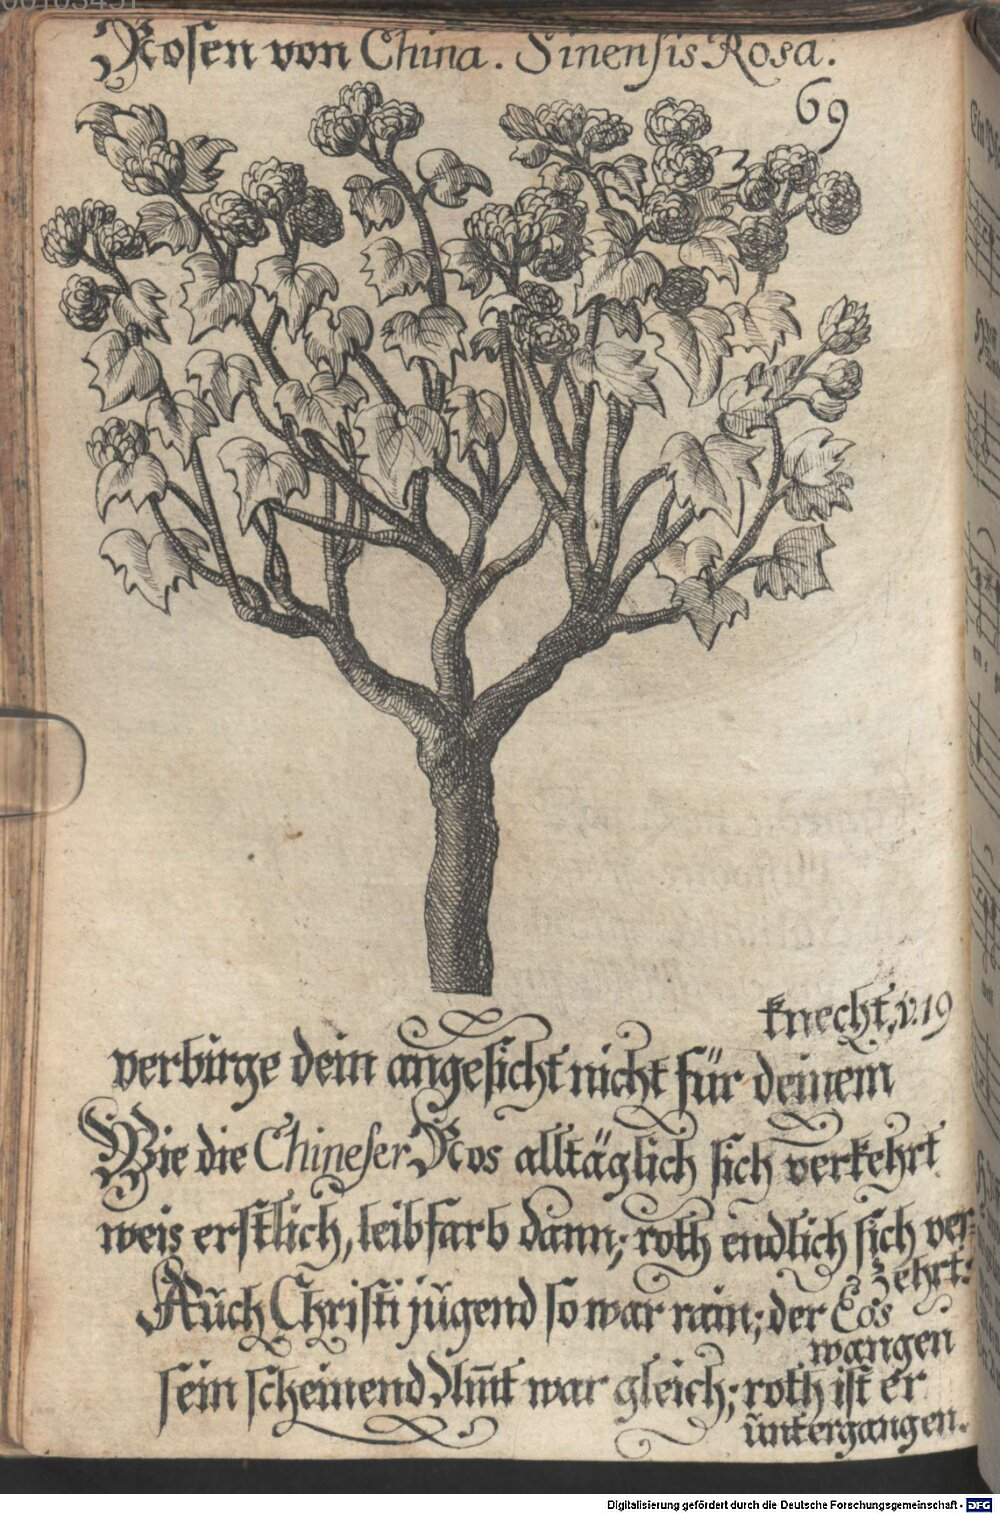 Rosen von China. Sinensis Rosa.
69
knecht, v. 19
verbirge dein angesicht nicht für deinem
Wie die Chineser Ros alltäglich sich verkehrt
weis erstlich, leibfarb dann; roth endlich sich ver-
zehrt:
Auch Christi jugend so war rain; der Eos
wangen
sein scheinend Amt war gleich; roth ist er
untergangen.
Digitalisierung gefördert durch die Deutsche Forschungsgemeinschaft - DFG